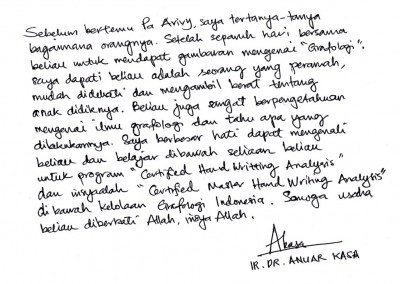 Sebelum bertemu Pa Arivy, saya tertanya-tanya
bagaimana orangnya. Setelah separuh hari bersama
beliau untuk mendapat gambaran mengenai "Grafologi",
saya dapati beliau adalah seorang yang peramah,
mudah didekati dan mengambil berat tentang
anak didiknya. Beliau juga sangat berpengetahuan
mengenai ilmu grafologi dan tahu apa yang
dilakukannya. Saya berbesar hati dapat mengenali
beliau dan belajar dibawah seliaan beliau
untuk program "Certified Hand Writting Analysis"
dan insyaalah "Certified Master Hand Writing Analysis"
di bawah kelolaan Grafologi Indonesia. Semoga usaha
beliau diberkati Allah, insya Allah.
Akasa
IR. DR. ANUAR KASA